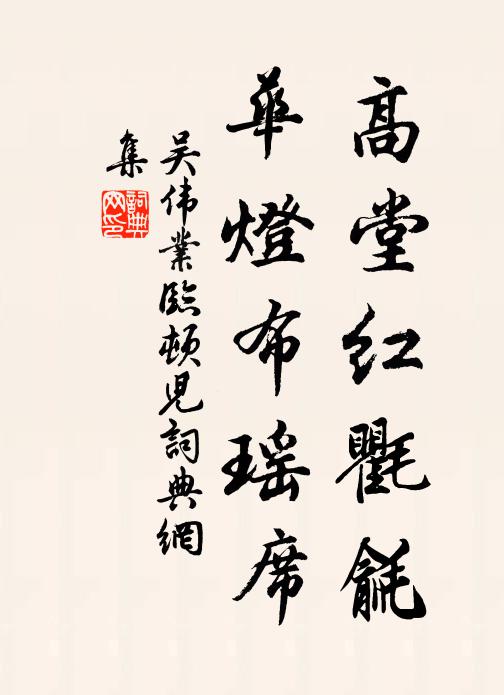 高堂红氍毹
華燈布瑶席
吴伟業臨頓兒詞典網
集
詞典网印